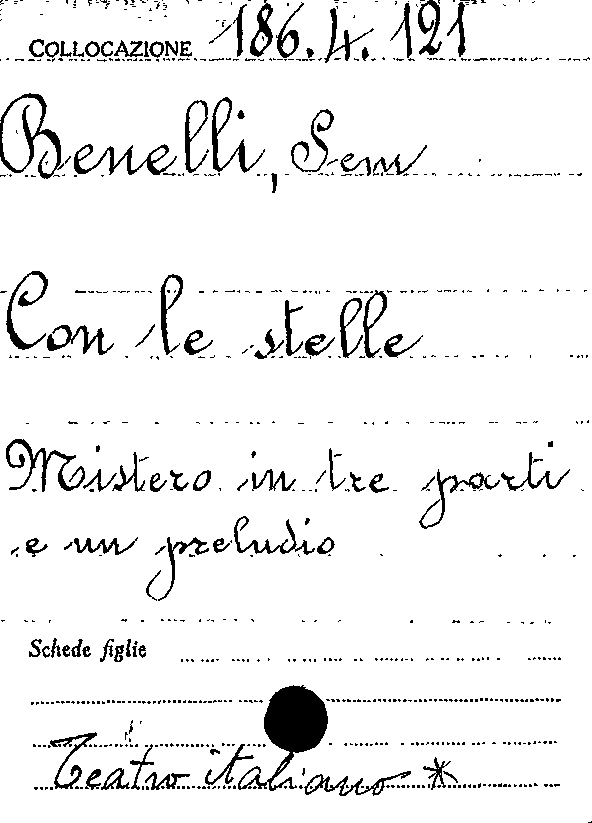 COLLOCAZIONE 186.4.121
Benelli, Sem
Con le stelle
Mistero in tre parti
e un preludio
Schede figlie
Teatro italiano *